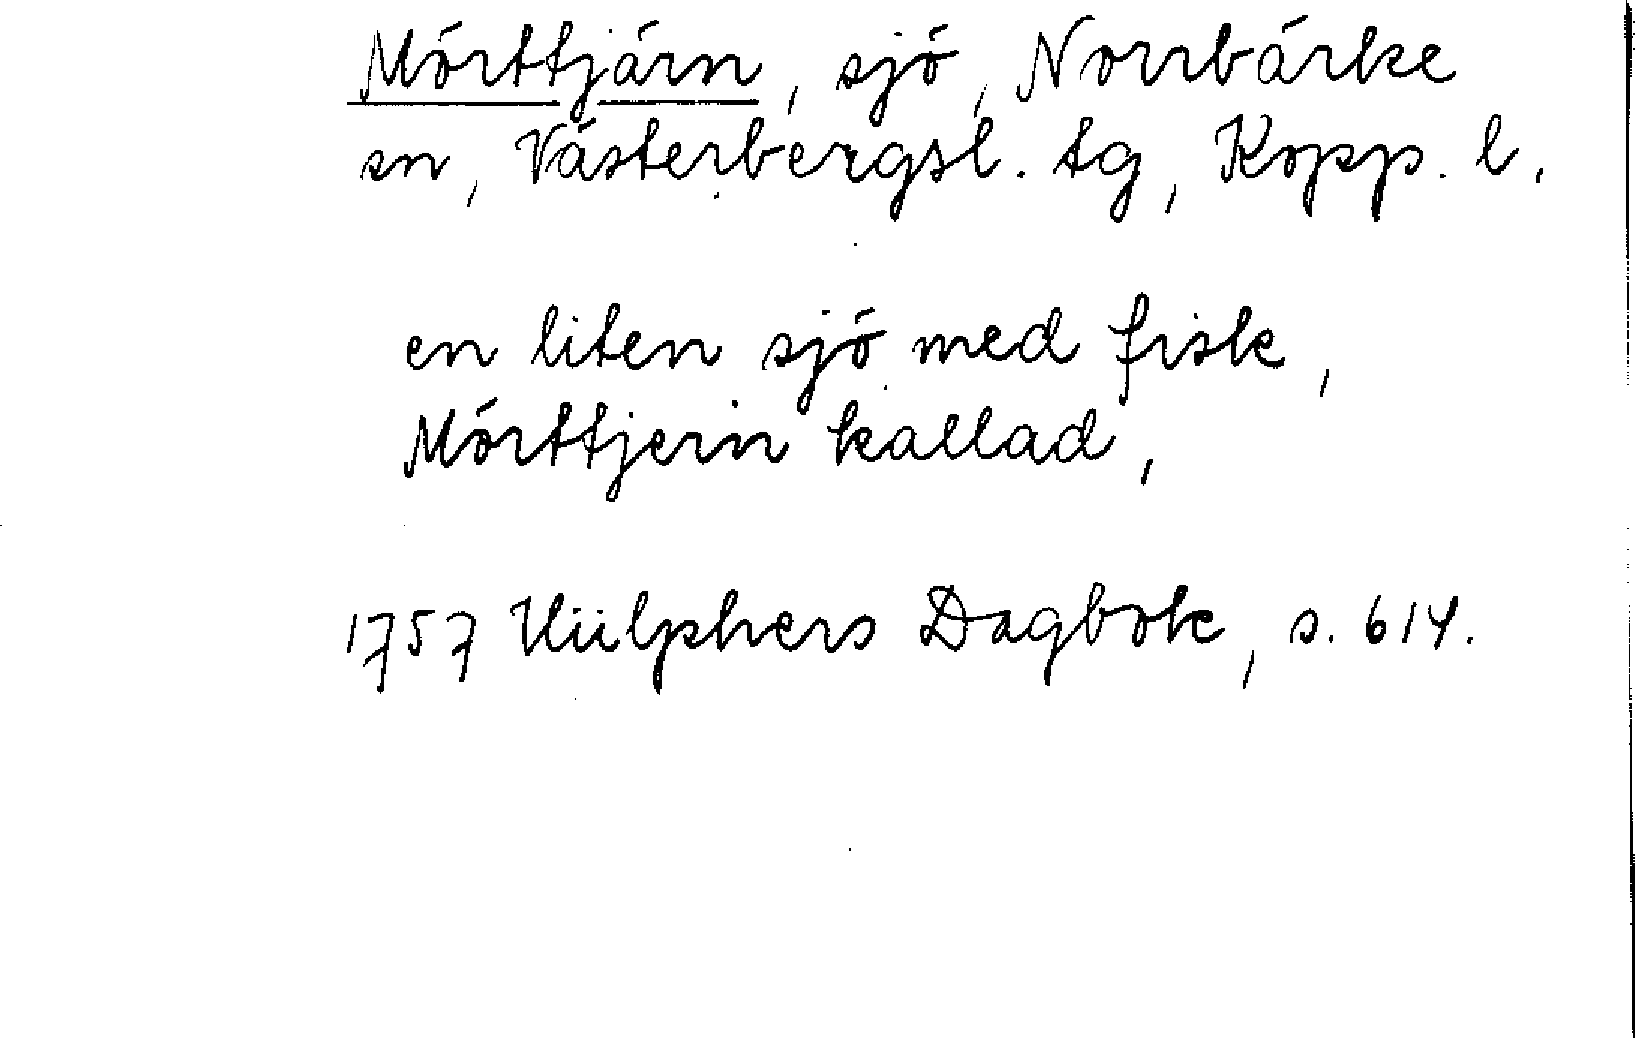 Mörttjärn, sjö, Norrbärke
sn, Västerbergsl. tg, Kopp. l.
en liten sjö med fisk,
Mörttjern kallad,
1757 Hülphers Dagbok, s. 614.